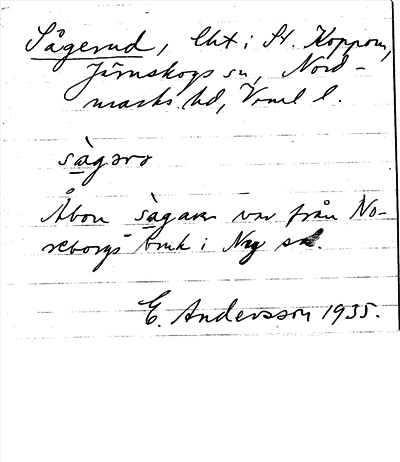 Sågerud, lht i St. Koppom,
Järnskogs sn, Nord-
marks hd, Vrml l.
sàgərʊ
Åbon sàgaren var från No-
reborgs bruk i Ny sn.
E. Andersson 1935.